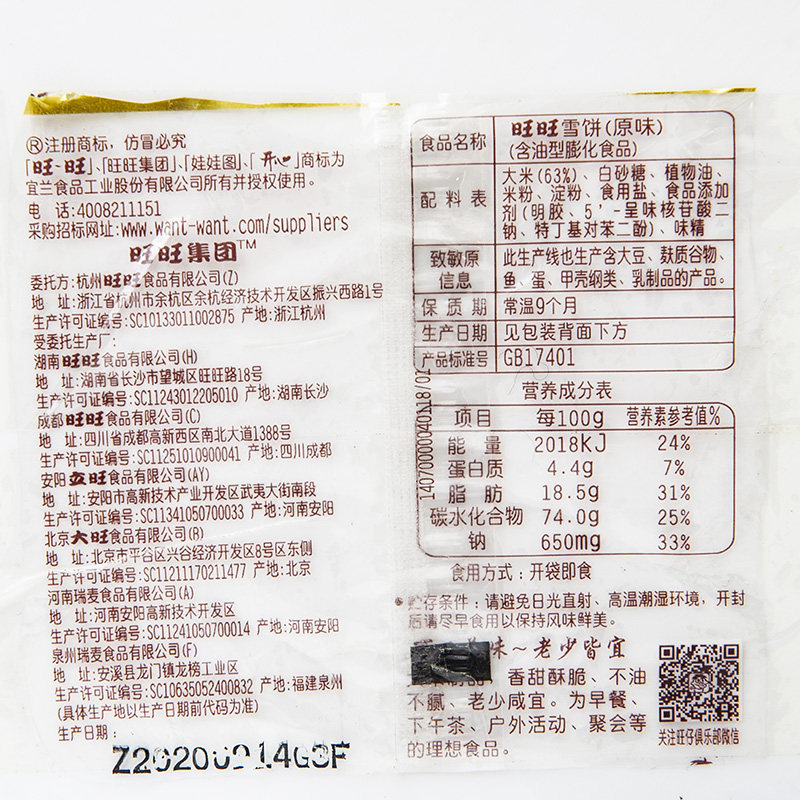 ®注册商标，仿冒必究
「旺~旺」、「旺旺集团」、「娃娃图」、「开心」商标为
宜兰食品工业股份有限公司所有并授权使用。
电 话:4008211151
采购招标网址:www.want-want.com/suppliers
旺旺集团™
委托方:杭州旺旺食品有限公司(Z)
地 址:浙江省杭州市余杭区余杭经济技术开发区振兴西路1号
生产许可证编号:SC10133011002875 产地:浙江杭州
受委托生产厂:
湖南旺旺食品有限公司(H)
地 址:湖南省长沙市望城区旺旺路18号
生产许可证编号:SC11243012205010 产地:湖南长沙
成都旺旺食品有限公司(C)
地 址:四川省成都高新西区南北大道1388号
生产许可证编号:SC11251010900041 产地:四川成都
安阳立旺食品有限公司(AY)
地 址:安阳市高新技术产业开发区武夷大街南段
生产许可证编号:SC11341050700033 产地:河南安阳
北京大旺食品有限公司(B)
地 址:北京市平谷区兴谷经济开发区8号区东侧
生产许可证编号:SC11211170211477 产地:北京
河南瑞麦食品有限公司(A)
地 址:河南安阳高新技术开发区
生产许可证编号:SC11241050700014 产地:河南安阳
泉州瑞麦食品有限公司(F)
地 址:安溪县龙门镇龙榜工业区
生产许可证编号:SC10635052400832 产地:福建泉州
(具体生产地以生产日期前代码为准)
生产日期:
食品名称 旺旺雪饼(原味)
(含油型膨化食品)
配料表 大米(63%)、白砂糖、植物油、
米粉、淀粉、食用盐、食品添加
剂(明胶、5′-呈味核苷酸二
钠、特丁基对苯二酚)、味精
致敏原信息 此生产线也生产含大豆、麸质谷物、
鱼、蛋、甲壳纲类、乳制品的产品。
保质期 常温9个月
生产日期 见包装背面下方
产品标准号 GB17401
营养成分表
项目 每100g 营养素参考值%
能量 2018KJ 24%
蛋白质 4.4g 7%
脂肪 18.5g 31%
碳水化合物 74.0g 25%
钠 650mg 33%
食用方式:开袋即食
贮存条件:请避免日光直射、高温潮湿环境，开封
后请尽早食用以保持风味鲜美。
味~老少皆宜
香甜酥脆、不油
不腻、老少咸宜。为早餐、
下午茶、户外活动、聚会等
的理想食品。
关注旺仔俱乐部微信